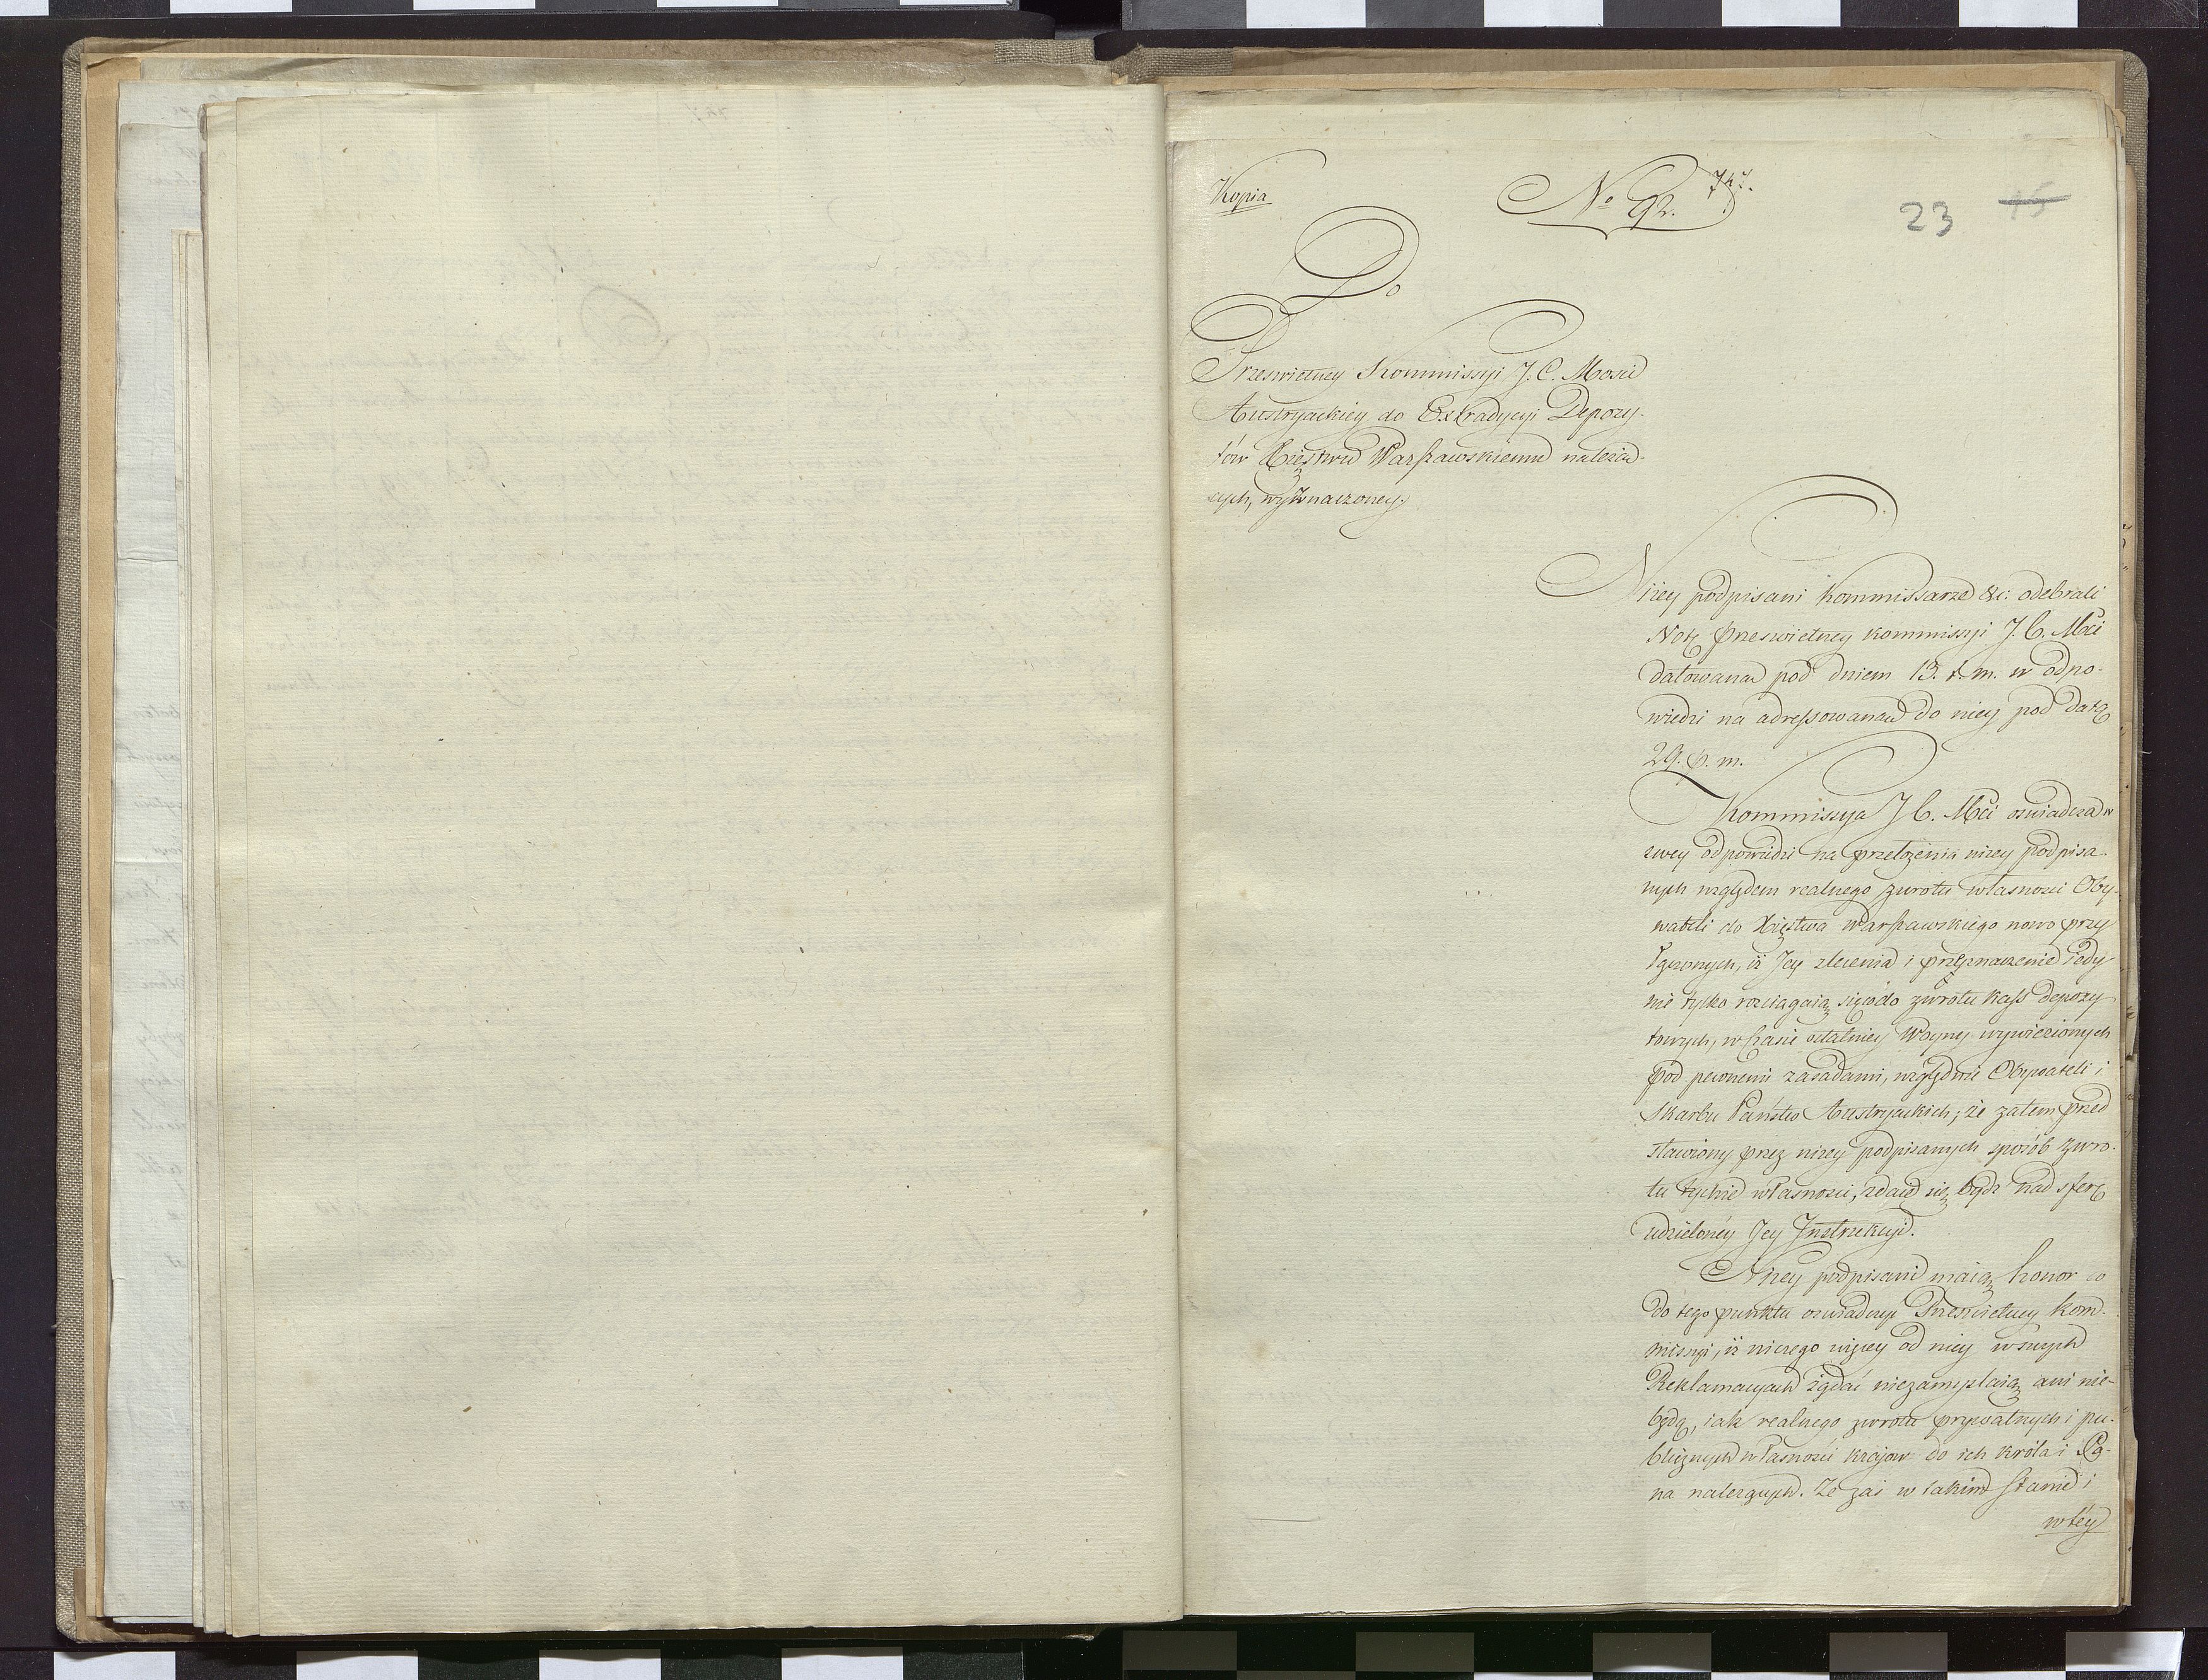 Kopia
No 92.
23 15
Do
Przeswietney Kommissyi J. C. Mosci
Austryackiey do Extradycyi Depozy-
tów Xięstwu Warszawskiemu należą-
cych, wyznaczoney.
Niżey podpisani Kommissarze &c. odebrali
Notę Przeswietney Kommissyi J. C. Mci
datowaną pod dniem 13. t. m. w odpo-
wiedzi na adressowaną do niey pod datą
29. p. m.
Kommissya J C. Mci oswiadcza w
swey odpowiedzi na przełożenia niżey podpisa-
nych względem realnego zwrotu własnosci Oby-
wateli do Xięstwa Warszawskiego nowo przy
łączonych, iż Jey zlecenia i przeznaczenie iedy-
nie tylko rozciągaią się do zwrotu kass depozy-
towych, w czasie ostatniey Woyny wywiezionych
pod pewnemi zasadami, względnie Obywateli i
Skarbu Państw Austryackich; że zatem przed
stawiony przez niżey podpisanych sposób zwro-
tu tychże własnosci, zdaie się bydź nad sferę
udzieloney Jey Instrukcyi.
Niżey podpisani maią honor co
do tego punktu oswiadczyć Przeswietney Kom-
missyi, iż niczego więcey od niey w swych
Reklamacyach żądać niezamyslaią ani nie-
będą, iak realnego zwrotu prywatnych i pu-
blicznych własnosci kraiow do ich Króla i Pa-
na należących. Że zaś w takim stanie i
w téy